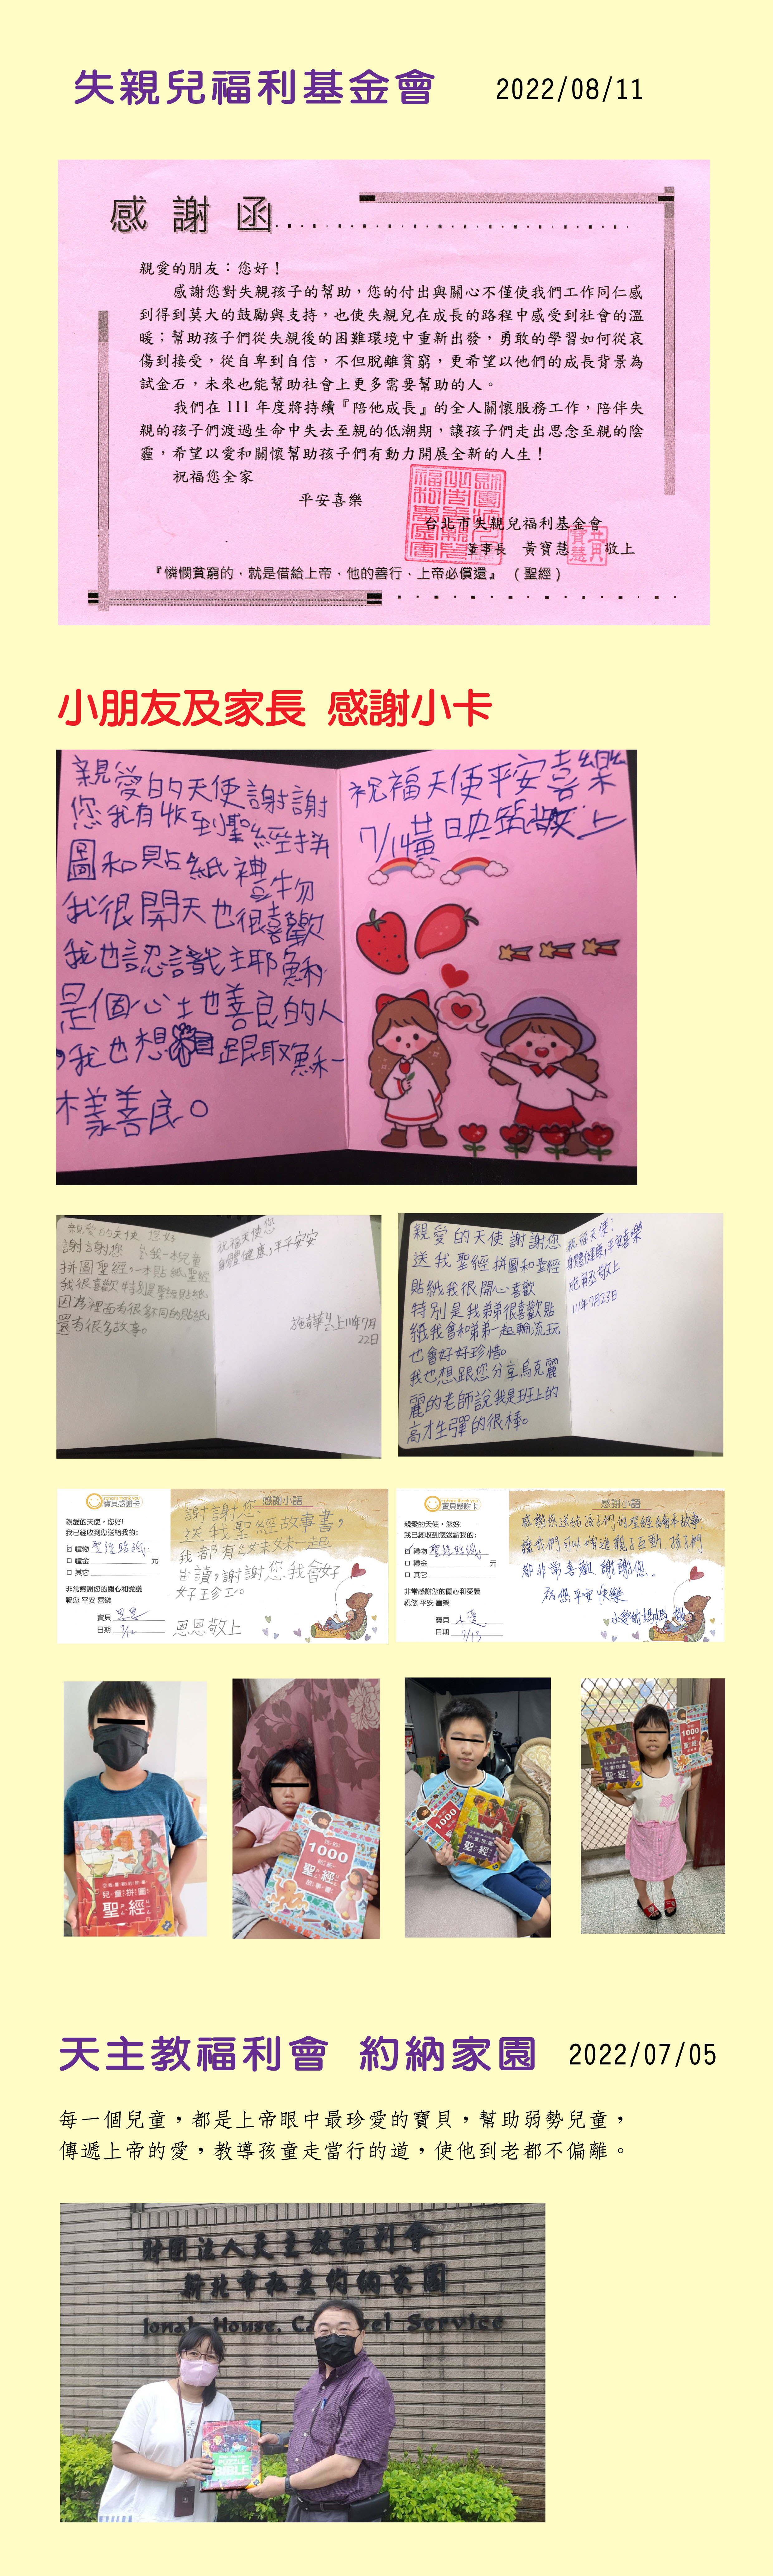 失親兒福利基金會 2022/08/11
感謝函
親愛的朋友：您好！
感謝您對失親孩子的幫助，您的付出與關心不僅使我們工作同仁感
到得到莫大的鼓勵與支持，也使失親兒在成長的路程中感受到社會的溫
暖；幫助孩子們從失親後的困難環境中重新出發，勇敢的學習如何從哀
傷到接受，從自卑到自信，不但脫離貧窮，更希望以他們的成長背景為
試金石，未來也能幫助社會上更多需要幫助的人。
我們在 111 年度將持續『陪他成長』的全人關懷服務工作，陪伴失
親的孩子們渡過生命中失去至親的低潮期，讓孩子們走出思念至親的陰
霾，希望以愛和關懷幫助孩子們有動力開展全新的人生！
祝福您全家
平安喜樂
台北市失親兒福利基金會
董事長 黃寶慧 敬上
『憐憫貧窮的，就是借給上帝，他的善行，上帝必償還』（聖經）
小朋友及家長 感謝小卡
親愛的天使謝謝
您我有收到聖經拼
圖和貼紙禮物
我很開天也很喜歡
我也認識主耶穌
是個心土也善良的人
，我也想 跟耶穌一
樣善良。
祝福天使平安喜樂
7/14黃
親愛的天使 您好
謝謝您 送我一本兒童
拼圖聖經，一本貼紙聖經
我很喜歡特別是聖經貼紙
因為裡面有很多不同的貼紙
還有很多故事。
祝福天使您
身體健康，平平安安
111年7月
22日
親愛的天使謝謝您
送我聖經拼圖和聖經
貼紙我很開心喜歡
特別是我弟弟很喜歡貼
紙我會和弟弟一起輪流玩
也會好好珍惜。
我也想跟您分享烏克麗
麗的老師說我是班上的
高才生彈的很棒。
祝福天使！
身體健康，平安喜樂
敬上
111年7月23日
寶貝感謝卡
親愛的天使，您好!
我已經收到您送給我的:
禮物 聖經貼紙
禮金 元
其它
非常感謝您的關心和愛護
祝您 平安 喜樂
寶貝 恩恩
日期 7/12
感謝小語
謝謝您
送我聖經故事書，
我都有和妹妹一起
讀，謝謝您我會好
好珍惜。
恩恩敬上
寶貝感謝卡
親愛的天使，您好!
我已經收到您送給我的:
禮物 聖經貼紙
禮金 元
其它
非常感謝您的關心和愛護
祝您 平安 喜樂
寶貝 小愛
日期 7/13
感謝小語
感謝您送給孩子們的聖經繪本故事.
讓我們可以增進親子互動，孩子們
都非常喜歡 謝謝您.
祝您平安 快樂
小愛的媽媽 敬上
兒童拼圖
聖經
1000
聖經
1000
聖經
1000
聖經
天主教福利會 約納家園 2022/07/05
每一個兒童，都是上帝眼中最珍愛的寶貝，幫助弱勢兒童，
傳遞上帝的愛，教導孩童走當行的道，使他到老都不偏離。
財團法人天主教福利會
新北市私立約納家園
Jonah House. Ca Service
BIBLE